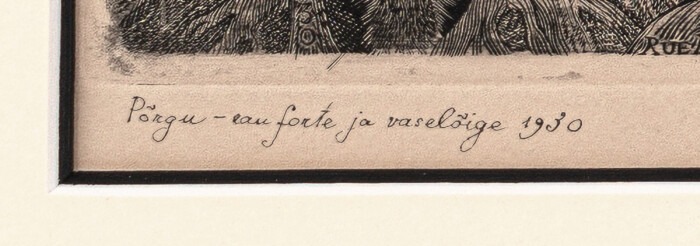 RUE
Põrgu – eau forte ja vaselõige 1930